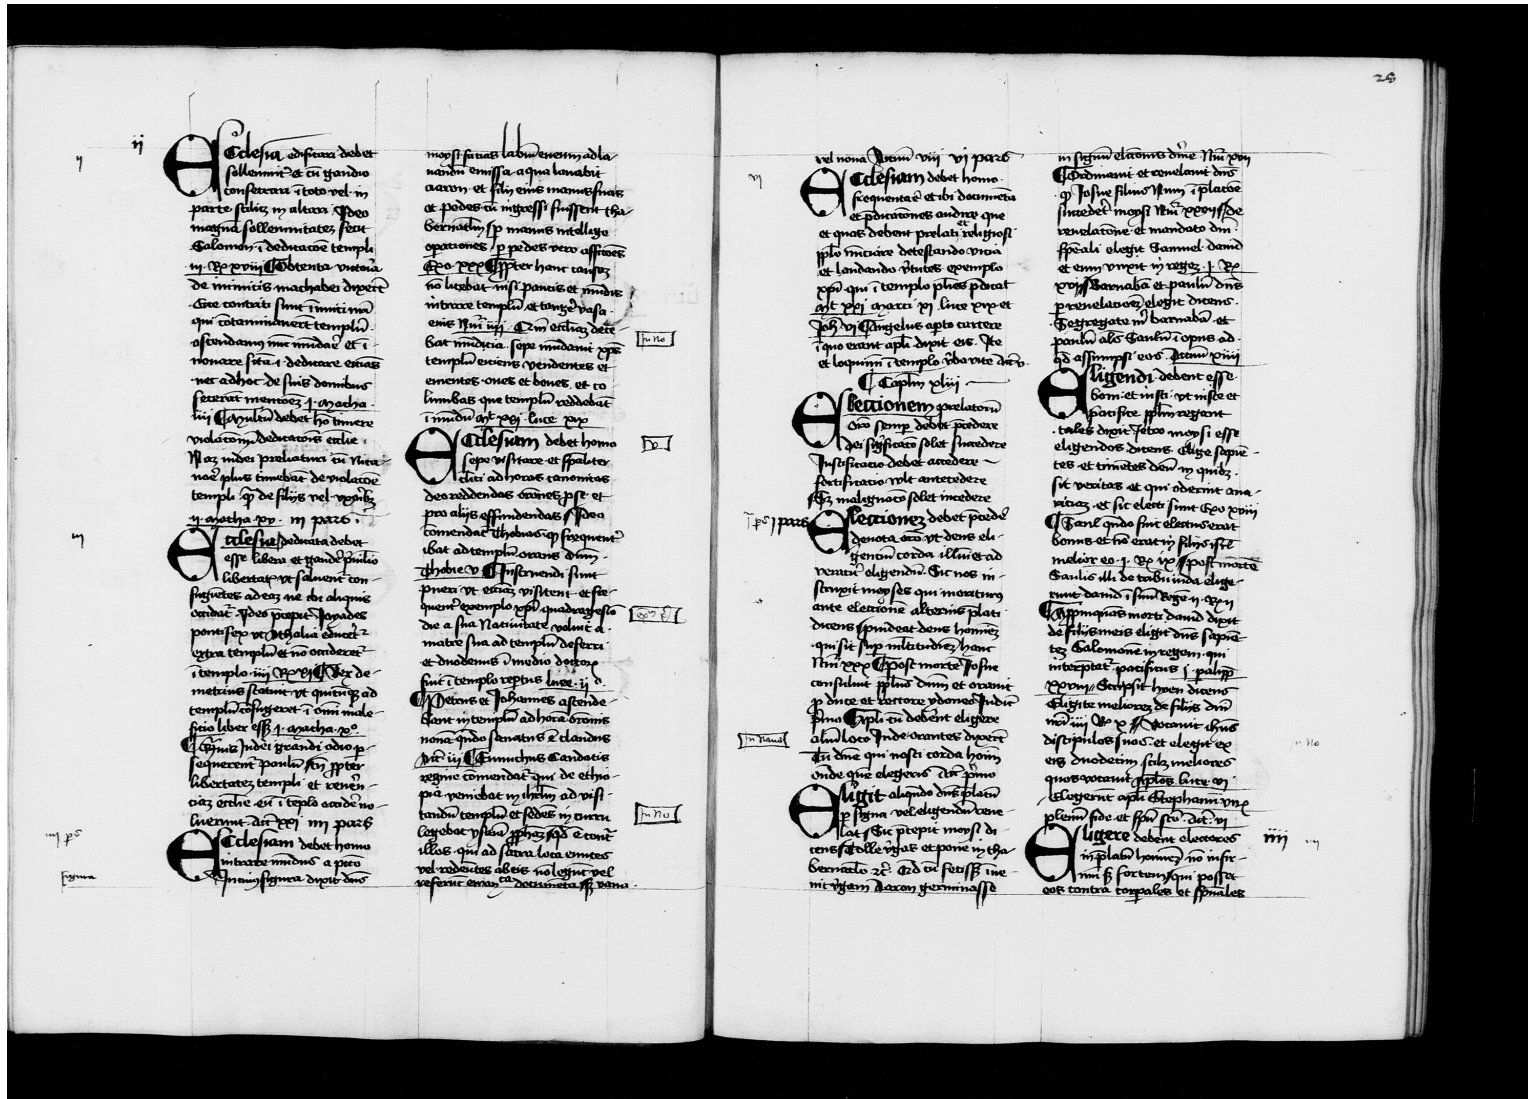 28
ij
Ecclesia edificata debet
sollenniter et cum gaudio
consecrari in toto vel in
parte scilicet in altari Ideo
magnam sollennitatem fecit
Salomon in dedicacione templi
iii Rx xviii Obtenta victoria
de inimicis machabei dixerunt
Ecce contriti sunt inimici nostri
qui contaminaverunt templum
ascendamus nunc mundare et i
novare sancta i dedicare
nec adhoc de suis domibus
fecerat mencionem j macha
iiii Multum debet homo timere
violacionem dedicacionis ecclesie
Nam iudei preliaturi cum Nica
nore plus timebant de violacione
templi quam de filiis vel uxoribus
ii macha xv iii pars
iij
Ecclesia dedicata debet
esse libera et gaudere privilegio
libertatis ut salvent con
fugientes ad eam ne ibi aliquis
occidatur Ideo precepit Joyades
pontifex ut Athalia educeretur
extra templum et non occideretur
in templo iiii Rx xi Rex de
metrius statuit ut quicumque ad
templum confugeret in omni male
ficio liber esset j macha x
Quamvis Judei grandi odio per
sequerentur paulum tamen propter
libertatem templi et reveren
ciam ecclesie eum in templo occidere no
luerunt act xxi iiii pars
Ecclesiam debet homo
intrare mundus a peccato
In cuius figura dixit dominus
figura
moysi facies labium eneum ad la
vandum missa aqua lavabit
aaron et filii eius manus suas
et pedes cum ingressi fuissent tha
bernaculum per manus intellige
operationes per pedes vero affectiones
Exo xxx Propter hanc causam
non licebat nisi paucis et mundis
intrare templum et tangere vasa
eius Num iiii Quia ecclesiam dece
bat mundicia sepe mundavit christus
templum eiciens vendentes et
ementes oves et boves et co
lumbas que templum reddebant
immundum mat xxi luce xix
v
Ecclesiam debet homo
sepe visitare et specialiter
clerici ad horas canonicas
deo reddendas oraciones pro se et
pro aliis effundendas Ideo
comendatur Thobias quod frequenter
ibat ad templum orans dominum
Thobie v Instruendi sunt
pueri ut ecclesiam visitent et fre
quentent exemplo christi quadragesimo
die a sua Nativitate voluit a
matre sua ad templum deferri
et duodennis in medio doctorum
fuit in templo reptus luce ii
Petrus et Johannes ascende
bant in templum ad horam oracionis
nonam quando sanatus est claudus
Act iii Eunuchus Candacis
regine comendatur qui de ethio
pia veniebat in iherusalem ad visi
tandum templum et sedens in curru
legebat ysaiam prophetam sed econtra
illos qui ad sacra loca euntes
vel redeuntes ab eis non legunt vel
referunt documenta sed vana
vel nova Actuum viii vi pars
vi
Ecclesiam debet homo
frequentare et ibi documenta
et predicationes audire que
et quas debent prelati et religiosi
populo nunciare detestando vicia
et laudando virtutes exemplo
christi qui in templo plures predicat
mat xxi marci xi luce xix et
Joh vi Angelus aperto carcere
in quo erant apostoli dixit eis Ite
et loquimini in templo verba vite act v
Capitulum xliii
Electionem prelatorum
oracio semper debet precedere
dei significacio solet succedere
Iustificatio debet accedere
fortificatio vult antecedere
Sed malignatio solet incedere
j pars
Electionem debet precedere
devota oracio ut deus eli
gentium corda illuminet ad
veraciter eligendum Sic nos in
struxit moyses qui moriturus
ante electionem alterius prelati
dicens provideat deus hominem
qui sit super multitudinem hanc
Num xxx Post mortem Josue
consuluit populus dominum et oravit
pro duce et rectore ydoneo Iudicum
primo Apostoli cum deberent eligere
alium loco Iude orantes dixerunt
Tu domine qui nosti corda hominum
onde quem elegeris act primo
Eligit aliquando dominus prelatum
per signa vel eligendum reve
lat Sic precepit moysi di
cens Tolle virgas et pone in tha
bernaculo etc Quod cum fecisset inve
nit virgam Aaron germinasse
in signum electionis divine Num xvii
Ordinavit et revelavit dominus
quod Josue filius Num in prelatione
succederet moysi Num xxvii De
revelatione et mandato domini
speciali elegit Samuel david
et eum unxit in regem j Rx
xvi Barnabam et paulum dominus
per revelacionem elegit dicens
Segregate mihi barnabam et
paulum alias Saulum in opus ad
quod assumpsi eos Actuum xiiii
Eligendi debent esse
boni et iusti ut iuste et
pacifice populum regant
tales dixit Jetro moysi esse
eligendos dicens Elige sapien
tes et timentes deum in quibus
sit veritas et qui oderint ava
riciam et sic electi sunt Exo xviii
Saul quando fuit electus erat
bonus et non erat in filiis israel
melior eo j Rx ix post mortem
Saulis illi de tribu iuda elige
runt david in suum Regem ii Rx ii
Appropinquans morti david dixit
de filiis meis eligit dominus sapien
tem Salomonem in regem qui
interpretatur pacificus j paralip
xxviii Scripsit hyeu dicens
Eligite meliorem de filiis domini
iiii Rx x Vocavit ihesus
discipulos suos et elegit ex
eis duodecim scilicet meliores
quos vocavit apostolos luce vi
Elegerunt apostoli Stephanum virum
plenum fide et spiritu sancto act vi
iiii
Eligere debent electores
in prelatum hominem non infir
mum sed fortem qui possset
eos contra corporales et spirituales